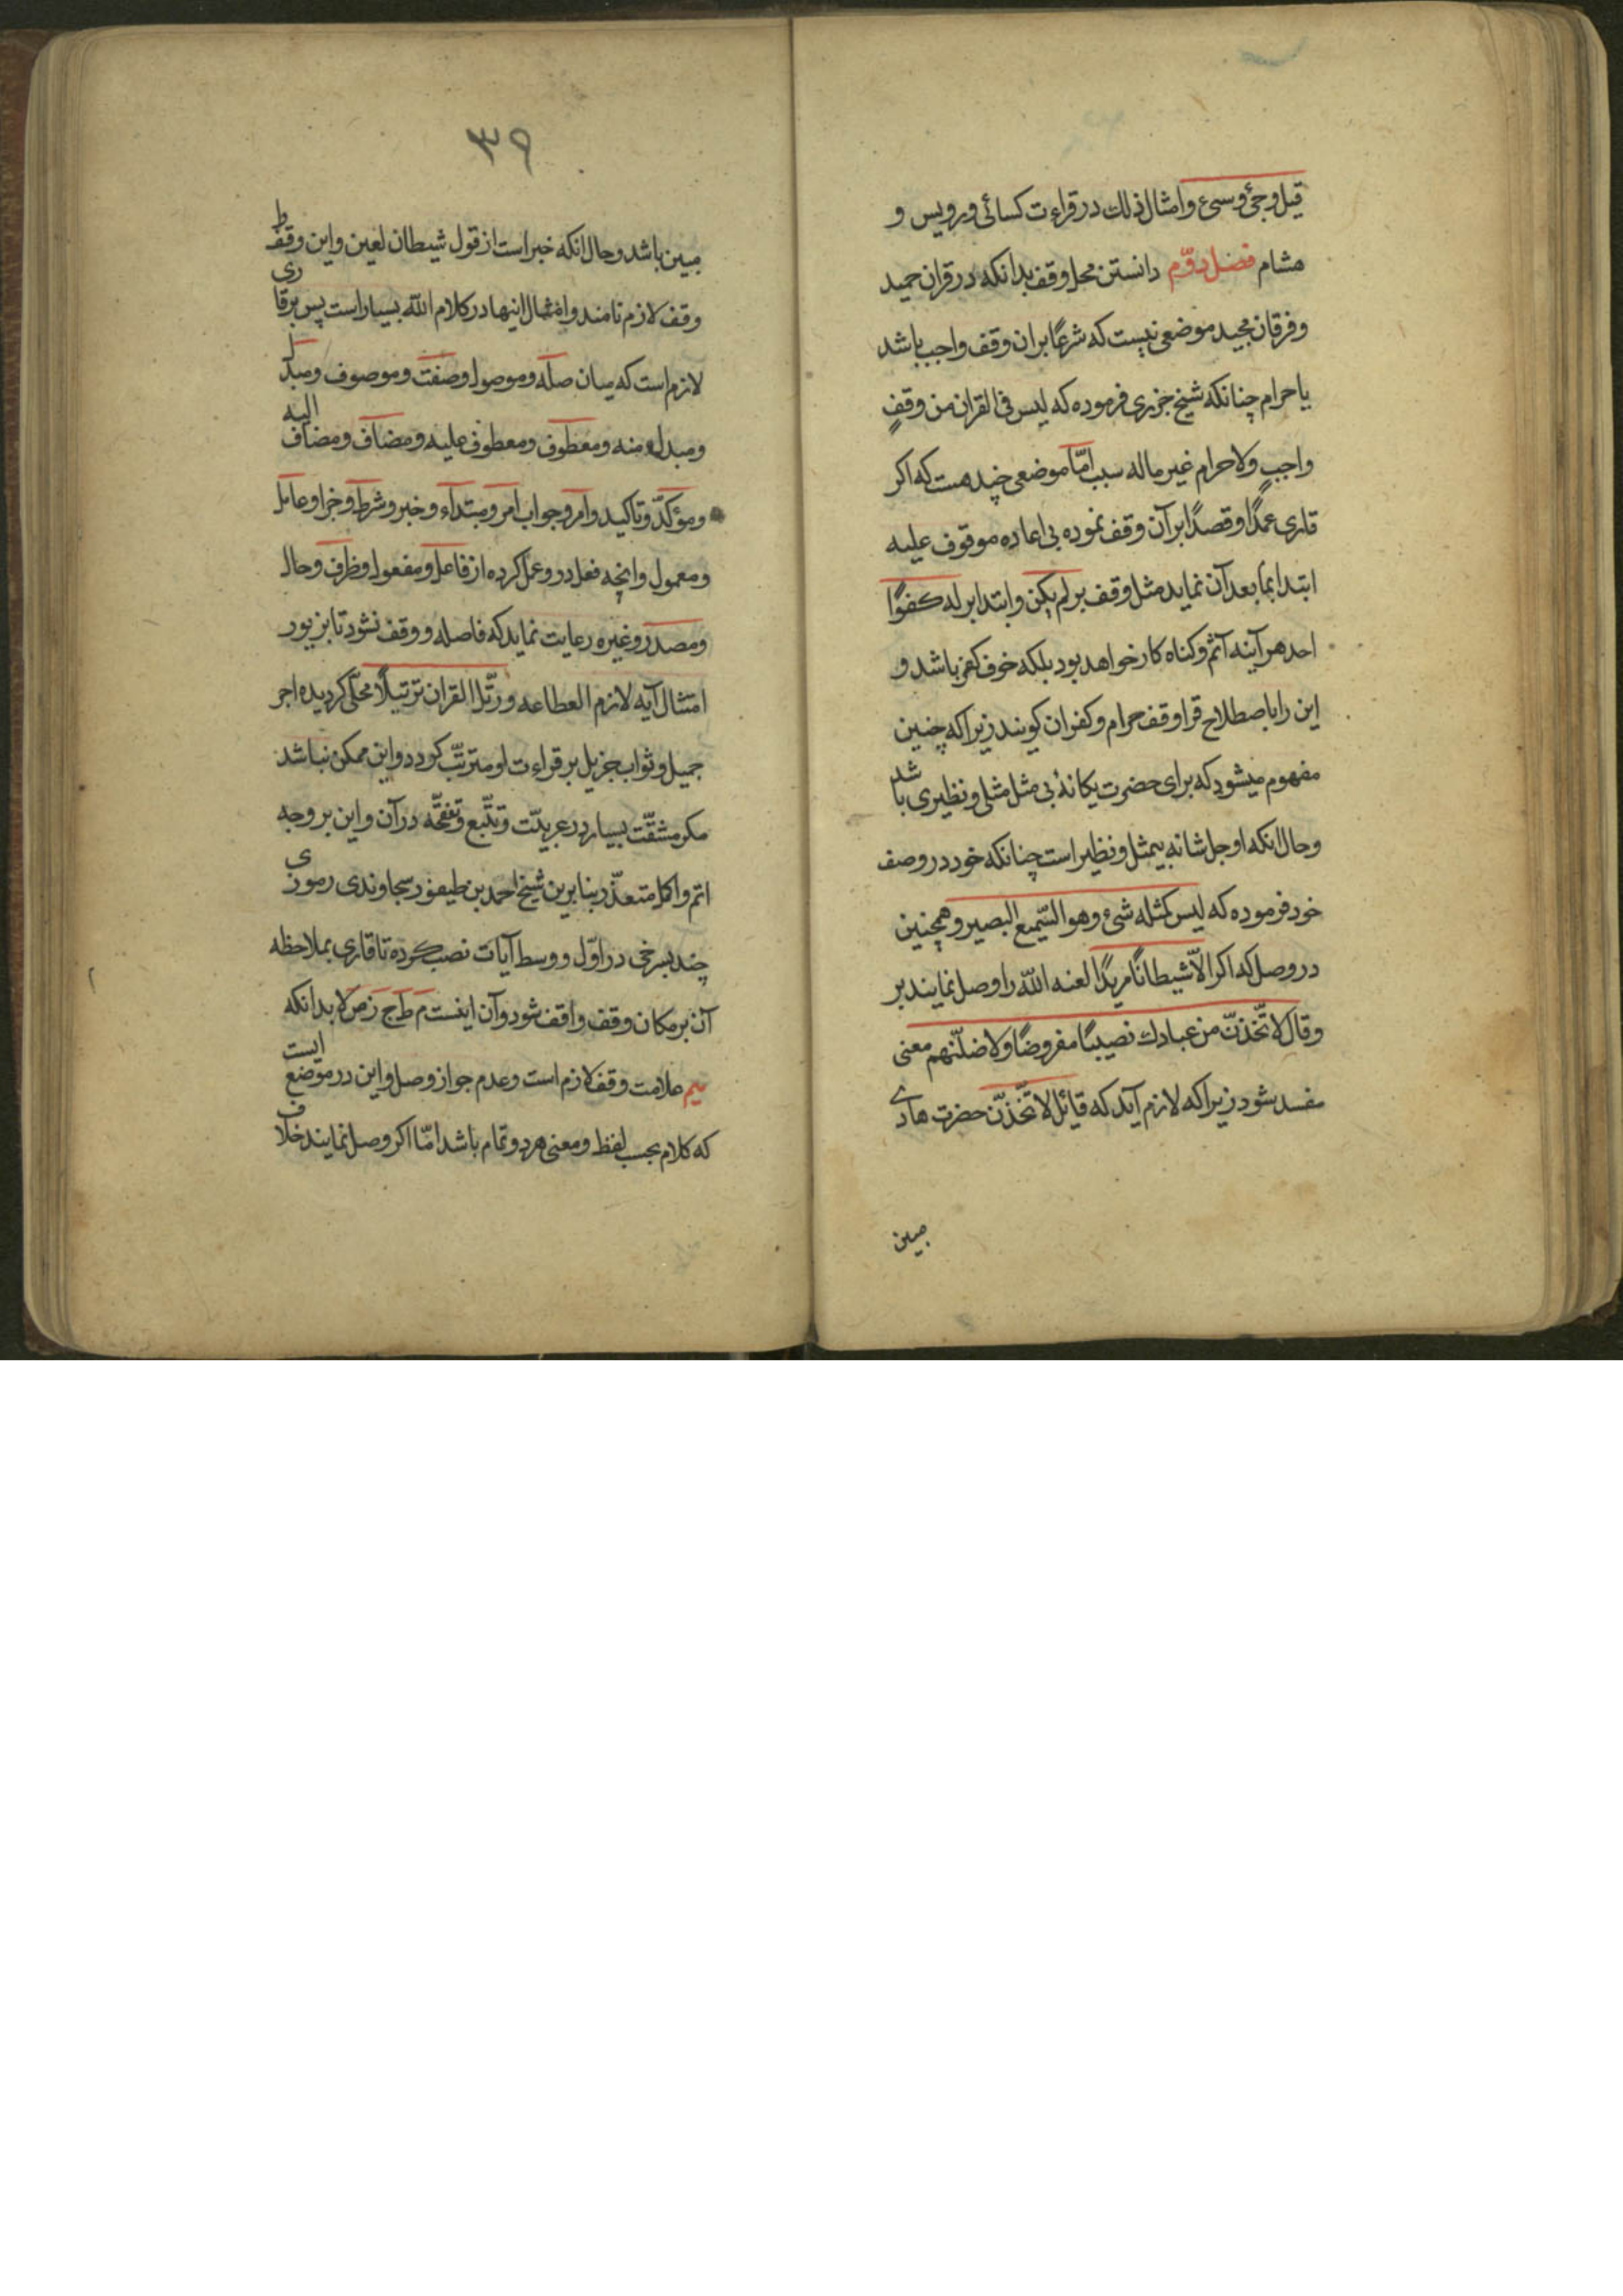 قیل وجئ وسیء وامثال ذلك در قراءت کسائی ورویس و
هشام فصل دوّم دانستن محل وقف بدانکه در قران حمید
وفرقان مجید موضعی نیست که شرعًا بران وقف واجب باشد
یا حرام چنانکه شیخ جزری فرموده که لیس فی القران من وقفٍ
واجبٍ ولا حرام غیر ماله سبب امّا موضعی چند هست که اکر
قاری عمدًا وقصدًا برآن وقف نموده بی اعاده موقوف علیه
ابتدا بما بعد آن نماید مثل وقف بر لم یکن وابتدا بر له کفوًا
احد هر آینه آثم وکناه کار خواهد بود بلکه خوف کفر باشد و
این را باصطلاح قرا وقف حرام وکفران کویند زیرا که چنین
مفهوم میشود که برای حضرت یکانهٔ بی مثل مثلی ونظیری باشد
وحال انکه او جل شانه بیمثل ونظیر است چنانکه خود در وصف
خود فرموده که لیس کمثله شیء وهو السّمیع البصیر وهمچنین
در وصل که اکر الّا شیطانًا مریدًا لعنه اللّه را وصل نمایند بر
وقال لاتّخذنّ من عبادك نصیبًا مفروضًا ولاضلّنهم معنی
مفسد شود زیرا که لازم آید که قائل لاتّخذنّ حضرت هادی
مبین
۳۹
مبین باشد وحال انکه خبر است از قول شیطان لعین واین وقف ط
وقف لازم نامند وامثال اینها در کلام اللّه بسیار است پس بر قاری
لازم است که میان صله وموصول وصفت وموصوف ومبدل
ومبدل منه ومعطوف ومعطوف علیه ومضاف ومضاف الیه
ومؤکّد وتاکید وامر وجواب امر ومبتداء وخبر وشرط وجزا وعامل
ومعمول وانچه فعل در وعمل کرده از فاعل ومفعول وظرف وحال
ومصدر وغیره رعایت نماید که فاصله ووقف نشود تا بزیور
امتثال آیه لازم العطاعه ورتّل القران ترتیلًا محلّی کردیده اجر
جمیل وثواب جزیل بر قراءت او مترتّب کردد واین ممکن نباشد
مکر مشقّت بسیار در عربیّت وتتّبع وتفقّه در آن واین بر وجه
اتم واکمل متعذّر بنابرین شیخ احمد بن طیفور سجاوندی رموزی
چند بسرخی در اوّل ووسط آیات نصب کرده تا قاری بملاحظه
آن بر مکان وقف واقف شود وآن اینست م ط ج ز ص لا بدانکه
میم علامت وقف لازم است وعدم جواز وصل واین در موضع ایست
که کلام بحسب لفظ ومعنی هر دو تمام باشد امّا اکر وصل نمایند خلاف